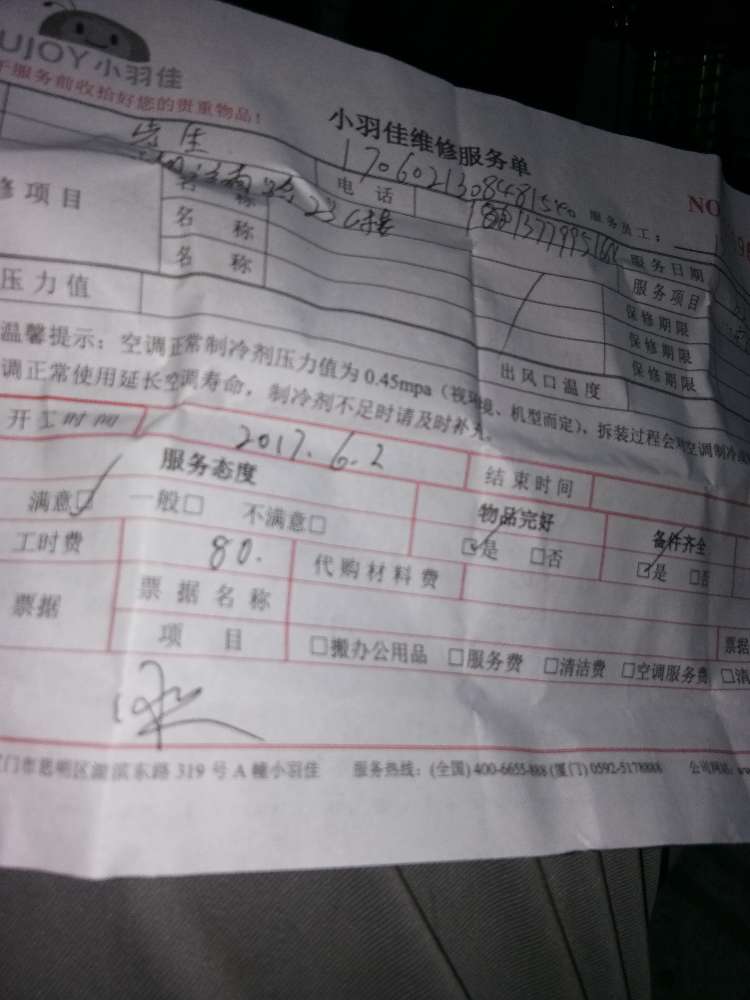 UJOY小羽佳
服务前收拾好您的贵重物品!
小羽佳维修服务单
NO
先生
电 话
服务员工:
修项目
名 称
服务日期
名 称
服务项目
名 称
保修期限
保修期限
保修期限
压力值
出风口温度
温馨提示:空调正常制冷剂压力值为0.45mpa(视环境、机型而定),拆装过程会
调正常使用延长空调寿命,制冷剂不足时请及时补充。
开工时间
2017.6.2
结束时间
服务态度
物品完好
备件齐全
满意☑ 一般□ 不满意□
☑是 □否
☑是 □否
工时费
80.
代购材料费
票据
票据名称
票据
项 目
□搬办公用品 □服务费 □清洁费 □空调服务费 □消
门市思明区湖滨东路 319 号 A 幢小羽佳 服务热线:(全国)400-6655-888(厦门)0592-5178888 公司网站: